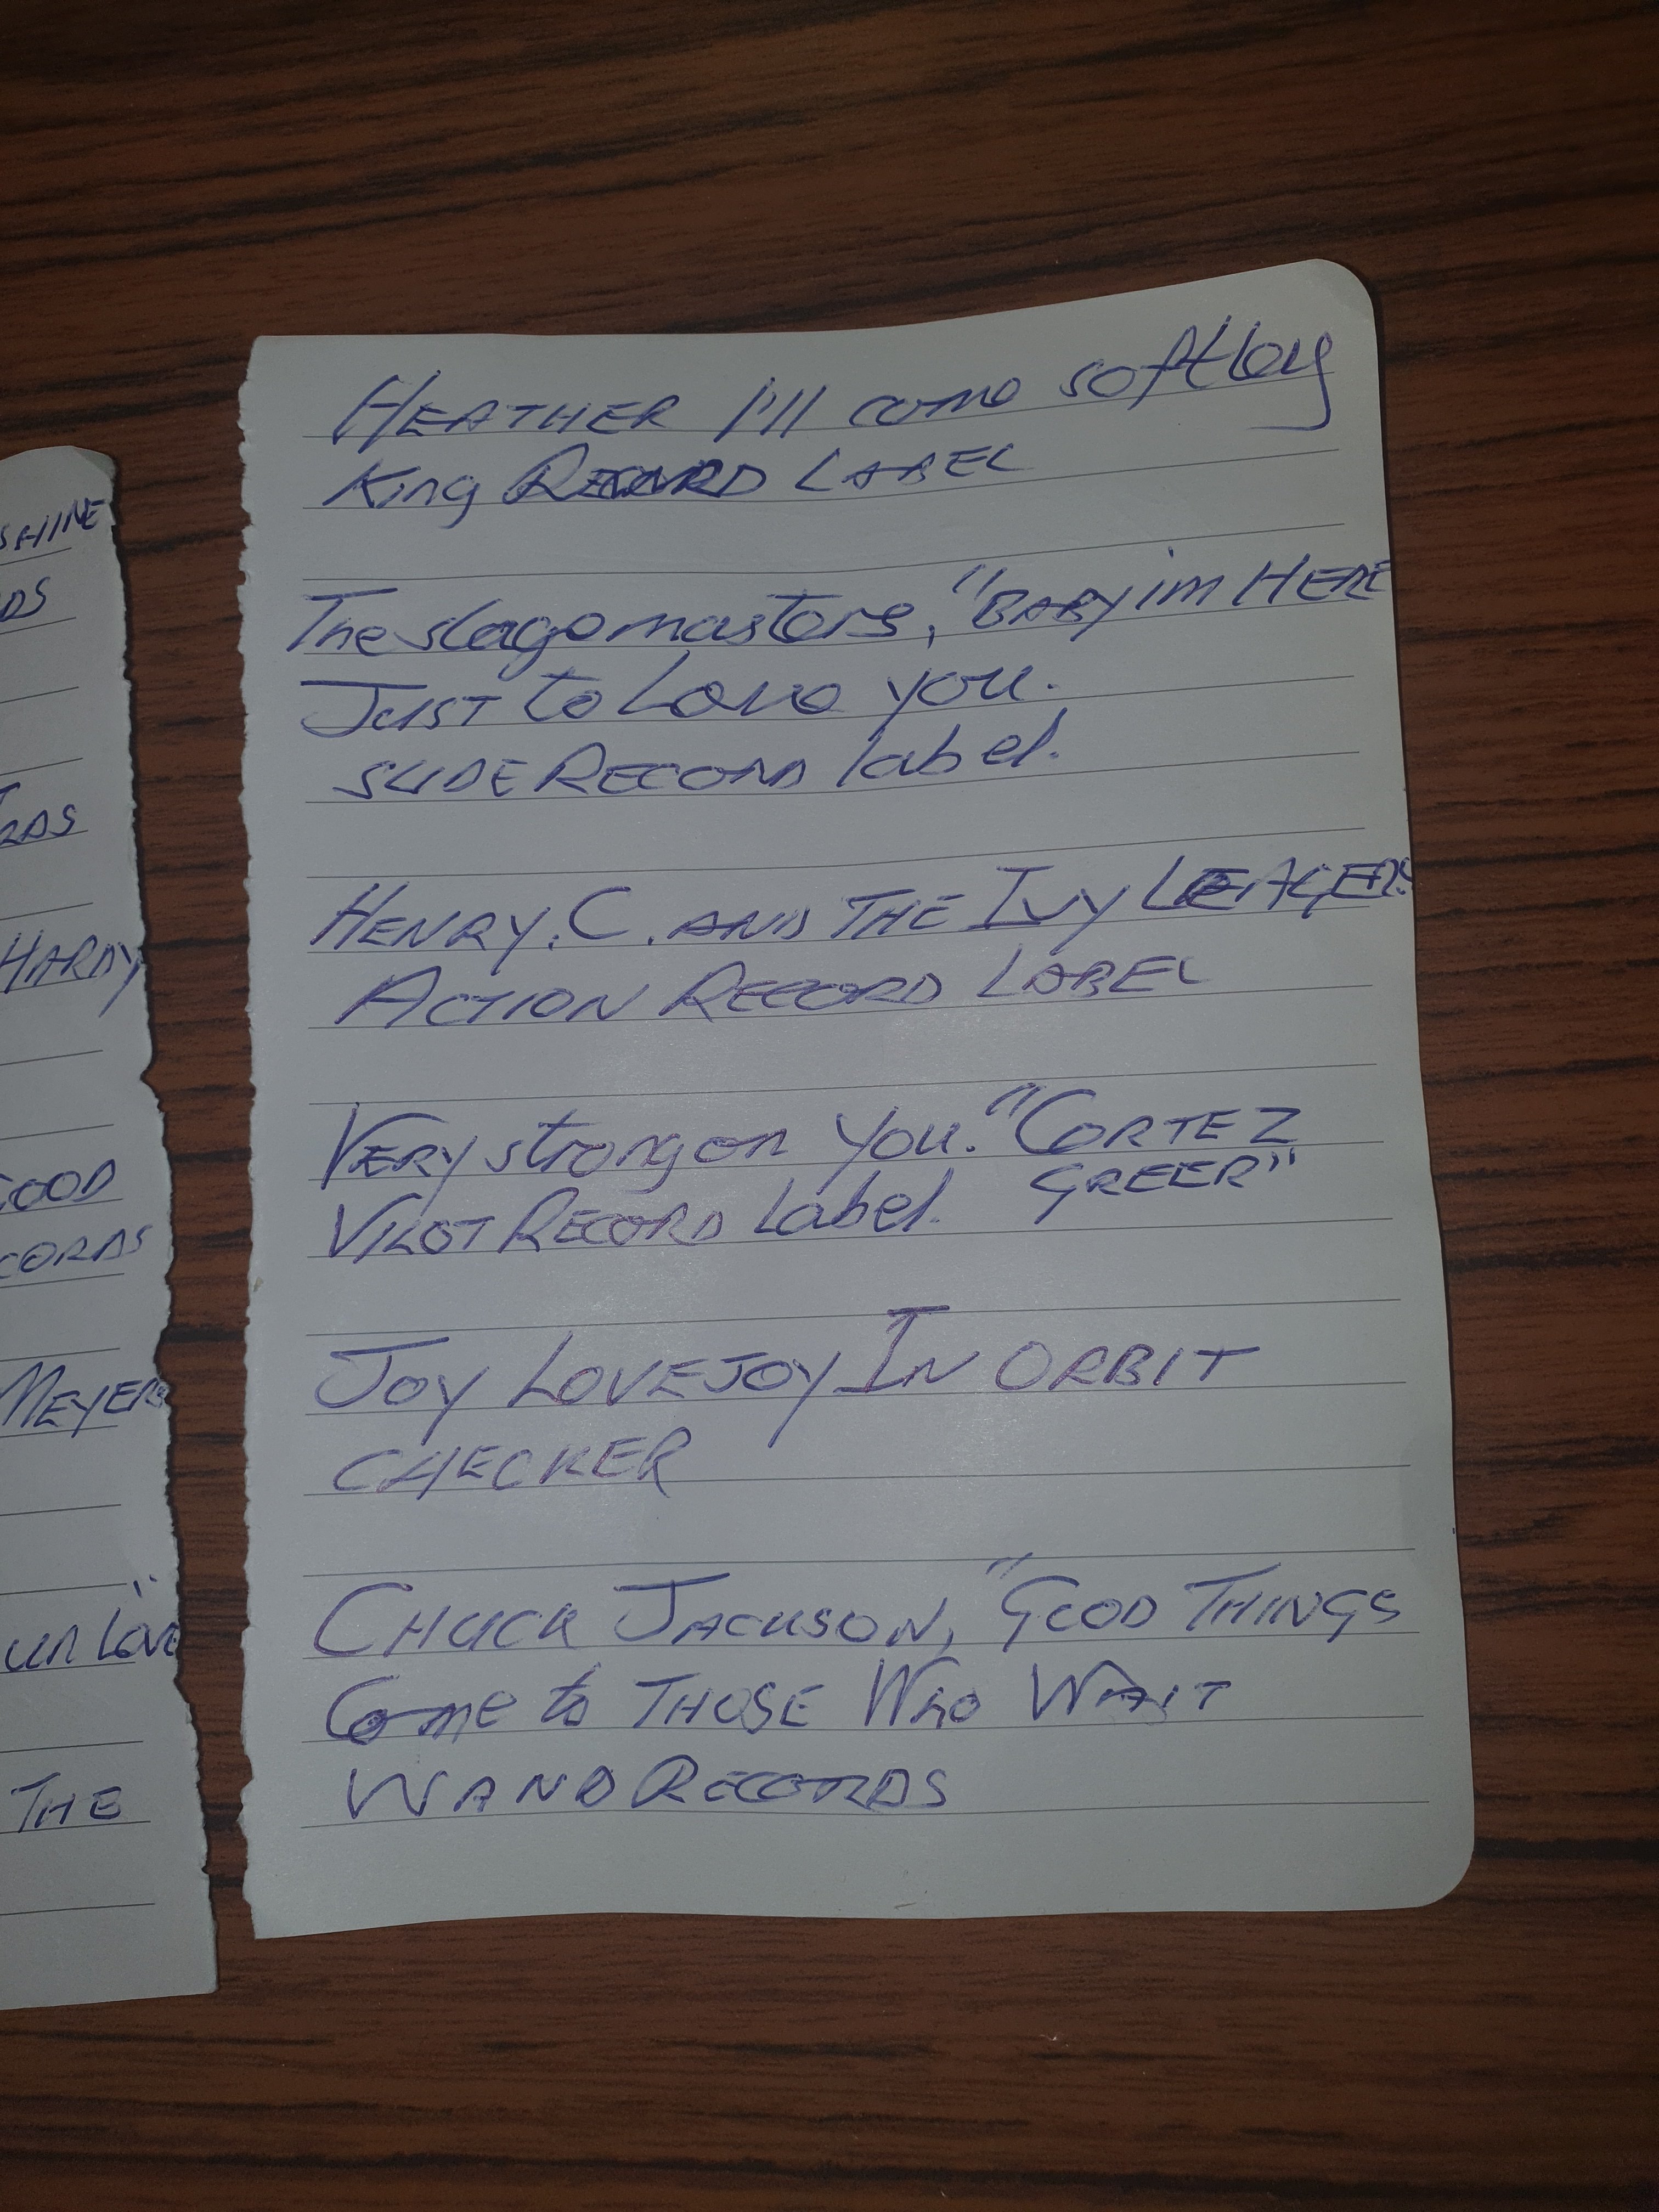 SHINE
DS
RDS
HARDY
GOOD
CORDS
MEYERS
UR LOVE"
THE
HEATHER I'll come softley
King RECORD LABEL
The stagemasters, "BABY im HERE
JUST to Love you.
SLIDE RECORD label.
HENRY. C. AND THE IVY LEAGERS
ACTION RECORD LABEL
VERY strong on You. "CORTEZ
GREER"
VILOT RECORD Label.
JOY LOVEJOY IN ORBIT
CHECKER
CHUCK JACKSON, "GOOD THINGS
Come to THOSE WHO WAIT
WAND RECORDS